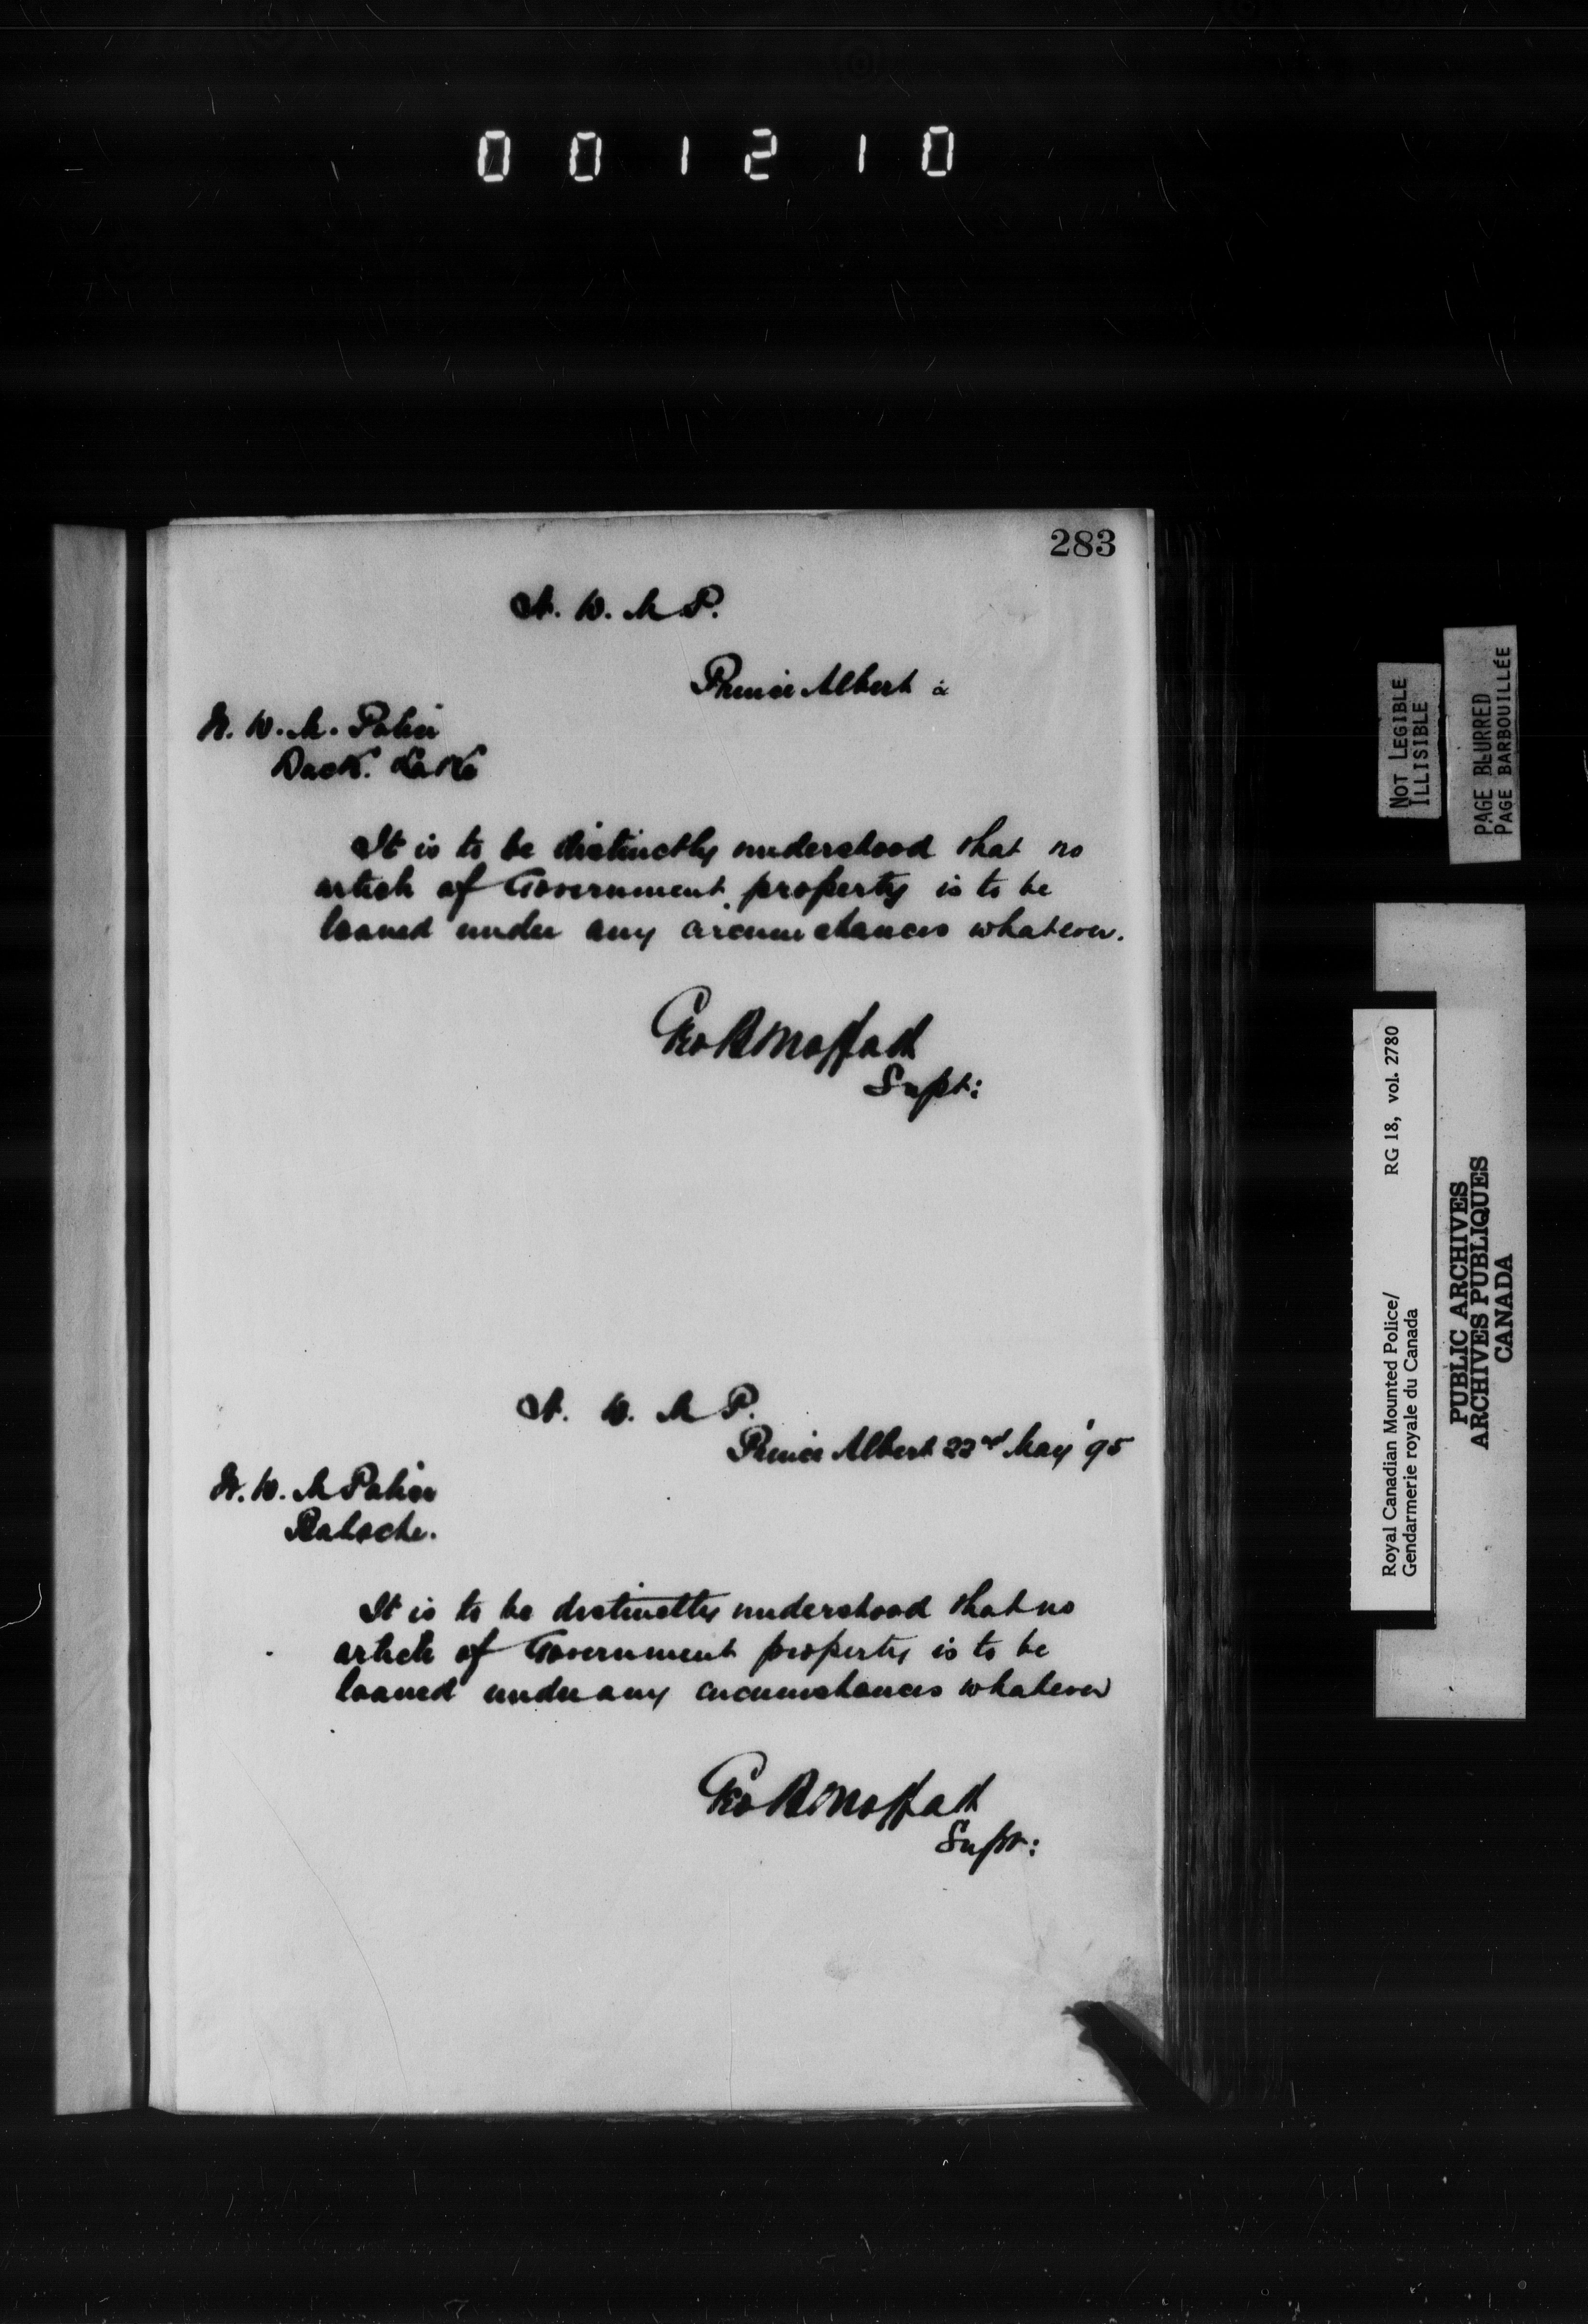 001210
283
N. W. M P.
Prince Albert
N. W. M. Police
Duck Lake
It is to be distinctly understood that no
article of Government property is to be
loaned under any circumstances whatever.
Geo B Moffatt
Supt:
N. W. M P.
Prince Albert 22nd May '95
N. W. M Police
Batoche.
It is to be distinctly understood that no
article of Government property is to be
loaned under any circumstances whatever
Geo B Moffatt
Supt:
NOT LEGIBLE
ILLISIBLE
PAGE BLURRED
PAGE BARBOUILLÉE
Royal Canadian Mounted Police/ RG 18, vol. 2780
Gendarmerie royale du Canada
PUBLIC ARCHIVES
ARCHIVES PUBLIQUES
CANADA